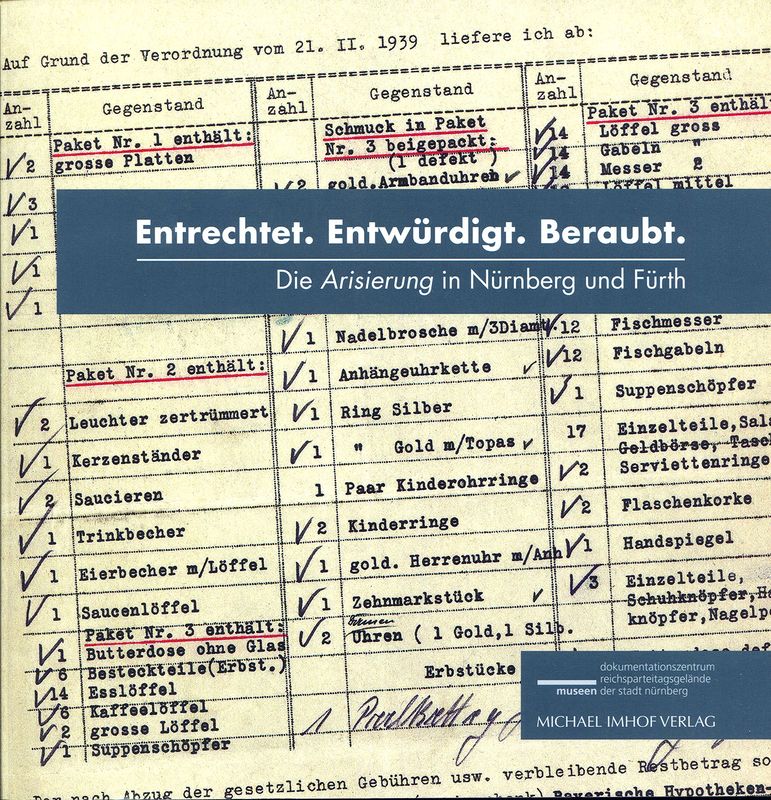 Auf Grund der Verordnung vom 21. II. 1939 liefere ich ab:
An-
zahl
Gegenstand
Paket Nr. 1 enthält:
2 grosse Platten
3
1
1
1
Paket Nr. 2 enthält:
2 Leuchter zertrümmert
1 Kerzenständer
2 Saucieren
1 Trinkbecher
1 Eierbecher m/Löffel
1 Saucenlöffel
Paket Nr. 3 enthält:
1 Butterdose ohne Glas
6 Besteckteile(Erbst.)
14 Esslöffel
6 Kaffeelöffel
2 grosse Löffel
1 Suppenschöpfer
An-
zahl
Gegenstand
Schmuck in Paket
Nr. 3 beigepackt:
(1 defekt )
2 gold.Armbanduhren
1 Nadelbrosche m/3Diamt.
1 Anhängeuhrkette
1 Ring Silber
1 " Gold m/Topas
1 Paar Kinderohrringe
2 Kinderringe
1 gold. Herrenuhr m/Anh
1 Zehnmarkstück
2 Uhren ( 1 Gold,1 Silb.
Erbstücke
1
An-
zahl
Gegenstand
Paket Nr. 3 enthält
14 Löffel gross
14 Gabeln "
14 Messer 2
Löffel mittel
12 Fischmesser
12 Fischgabeln
1 Suppenschöpfer
17 Einzelteile,Sals
Geldbörse, Tasch
2 Serviettenringe
2 Flaschenkorke
1 Handspiegel
3 Einzelteile,
Schuhknöpfer,
knöpfer,Nagelpo
Entrechtet. Entwürdigt. Beraubt.
Die Arisierung in Nürnberg und Fürth
dokumentationszentrum
reichsparteitagsgelände
museen der stadt nürnberg
MICHAEL IMHOF VERLAG
nach Abzug der gesetzlichen Gebühren usw. verbleibende Restbetrag so
Bayerische Hypotheken-